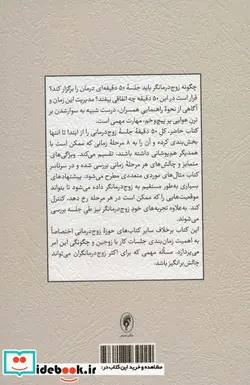 چگونه زوج‌درمانگر باید جلسهٔ ۵۰ دقیقه‌ای درمان را برگزار کند؟
قرار است در این ۵۰ دقیقه چه اتفاقی بیفتد؟ مدیریت این زمان و
آگاهی از نحوهٔ راهنمایی همسران، درست شبیه به سوارشدن بر
ترن هوایی پر پیچ‌وخم، مهارت مهمی است.
کتاب حاضر، کل ۵۰ دقیقهٔ جلسهٔ زوج‌درمانی را از ابتدا تا انتها
بخش‌بندی کرده و آن را به ۸ مرحلهٔ زمانی که ممکن است با
یکدیگر هم‌پوشانی داشته باشند، تقسیم می‌کند. ویژگی‌های
متمایز و چالش‌های هر مرحلهٔ زمانی بررسی شده و در سرتاسر
کتاب مثال‌های موردی متعددی مطرح می‌شود. پیشنهادهای
بسیاری به‌طور مستقیم به زوج‌درمانگر داده می‌شود تا بتواند
موقعیت‌هایی را که ممکن است در هر مرحله رخ دهد، کنترل
کند. به‌علاوه تجربه‌های خود زوج‌درمانگر نیز طی جلسه بررسی
می‌شوند.
این کتاب برخلاف سایر کتاب‌های حوزهٔ زوج‌درمانی اختصاصاً
به اهمیت زمان‌بندی جلسات کار با زوجین و چگونگی این امر
می‌پردازد. مسأله مهمی که برای اکثر زوج‌درمانگران می‌تواند
چالش‌برانگیز باشد.
مشاهده و خرید این کتاب در:
idebook.ir